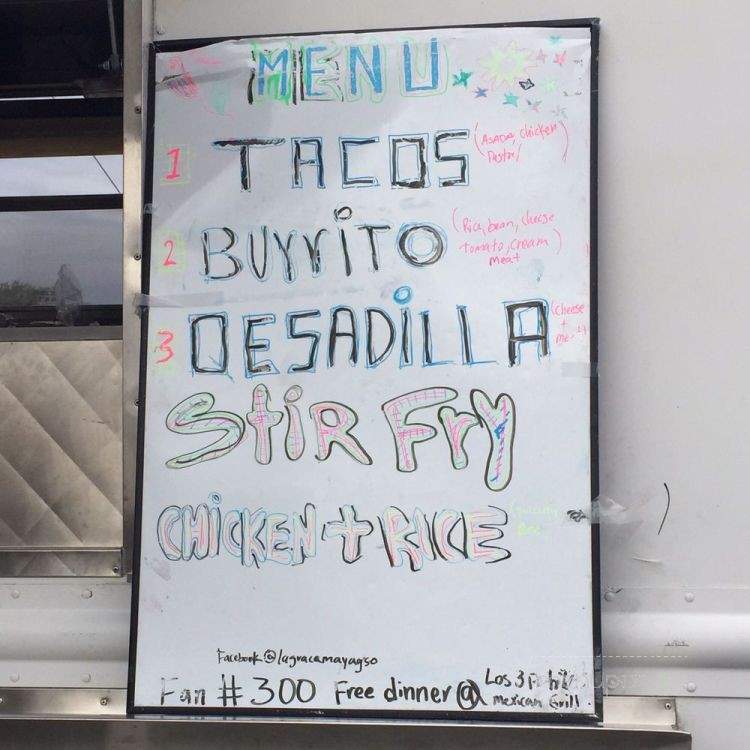 MENU
1 TACOS (Asada, chicken
Pastor)
2 BUrriTO (Rice, bean, cheese
tomato, cream)
meat
3 QESADiLLA (cheese
+
Stir Fry
CHiCKEN + RiCE
Facebook @lagracamayagso
Fan #300 Free dinner @ Los 3
mexican Grill